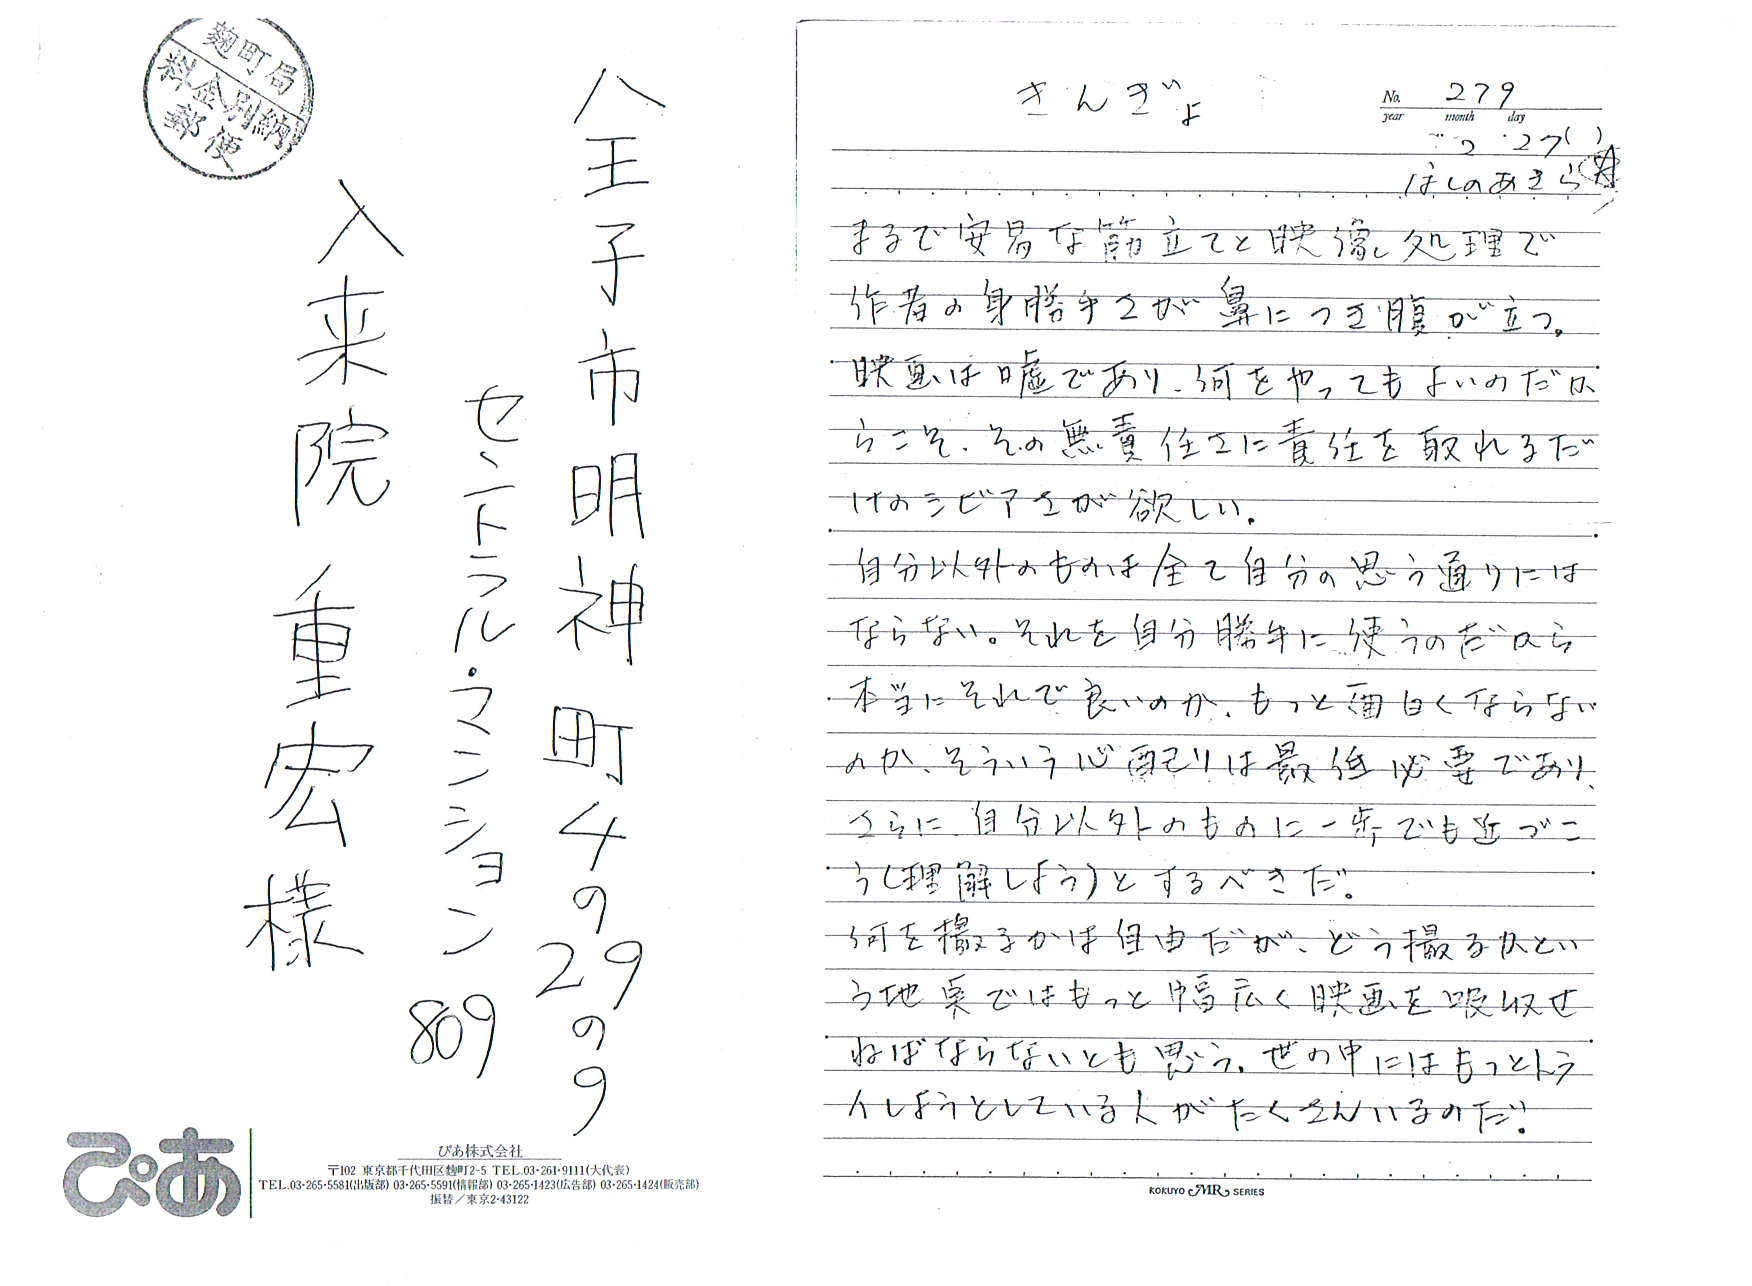 麹町局
料金別納
郵便
八王子市明神町4の29の9
セントラル・マンション
809
入来院重宏様
ぴあ
ぴあ株式会社
〒102 東京都千代田区麹町2-5 TEL.03・261・9111(大代表)
TEL.03・265・5581(出版部) 03・265・5591(情報部) 03・265・1423(広告部) 03・265・1424(販売部)
振替/東京2・43122
きんぎょ
No. 279
year month day
2・27( )
ほしのあきら
まるで安易な筋立てと映像処理で
作者の身勝手さが鼻につき腹が立つ。
映画は嘘であり、何をやってもよいのだか
らこそ、その無責任さに責任を取れるだ
けのシビアさが欲しい。
自分以外のものは全て自分の思う通りには
ならない。それを自分勝手に使うのだから
本当にそれで良いのか、もっと面白くならない
のか、そういう心配りは最低必要であり、
さらに、自分以外のものに一歩でも近づこ
う(理解しよう)とするべきだ。
何を撮るかは自由だが、どう撮るかとい
う地点ではもっと幅広く映画を吸収せ
ねばならないとも思う。世の中にはもっとトラ
イしようとしている人がたくさんいるのだ!
KOKUYO MR SERIES